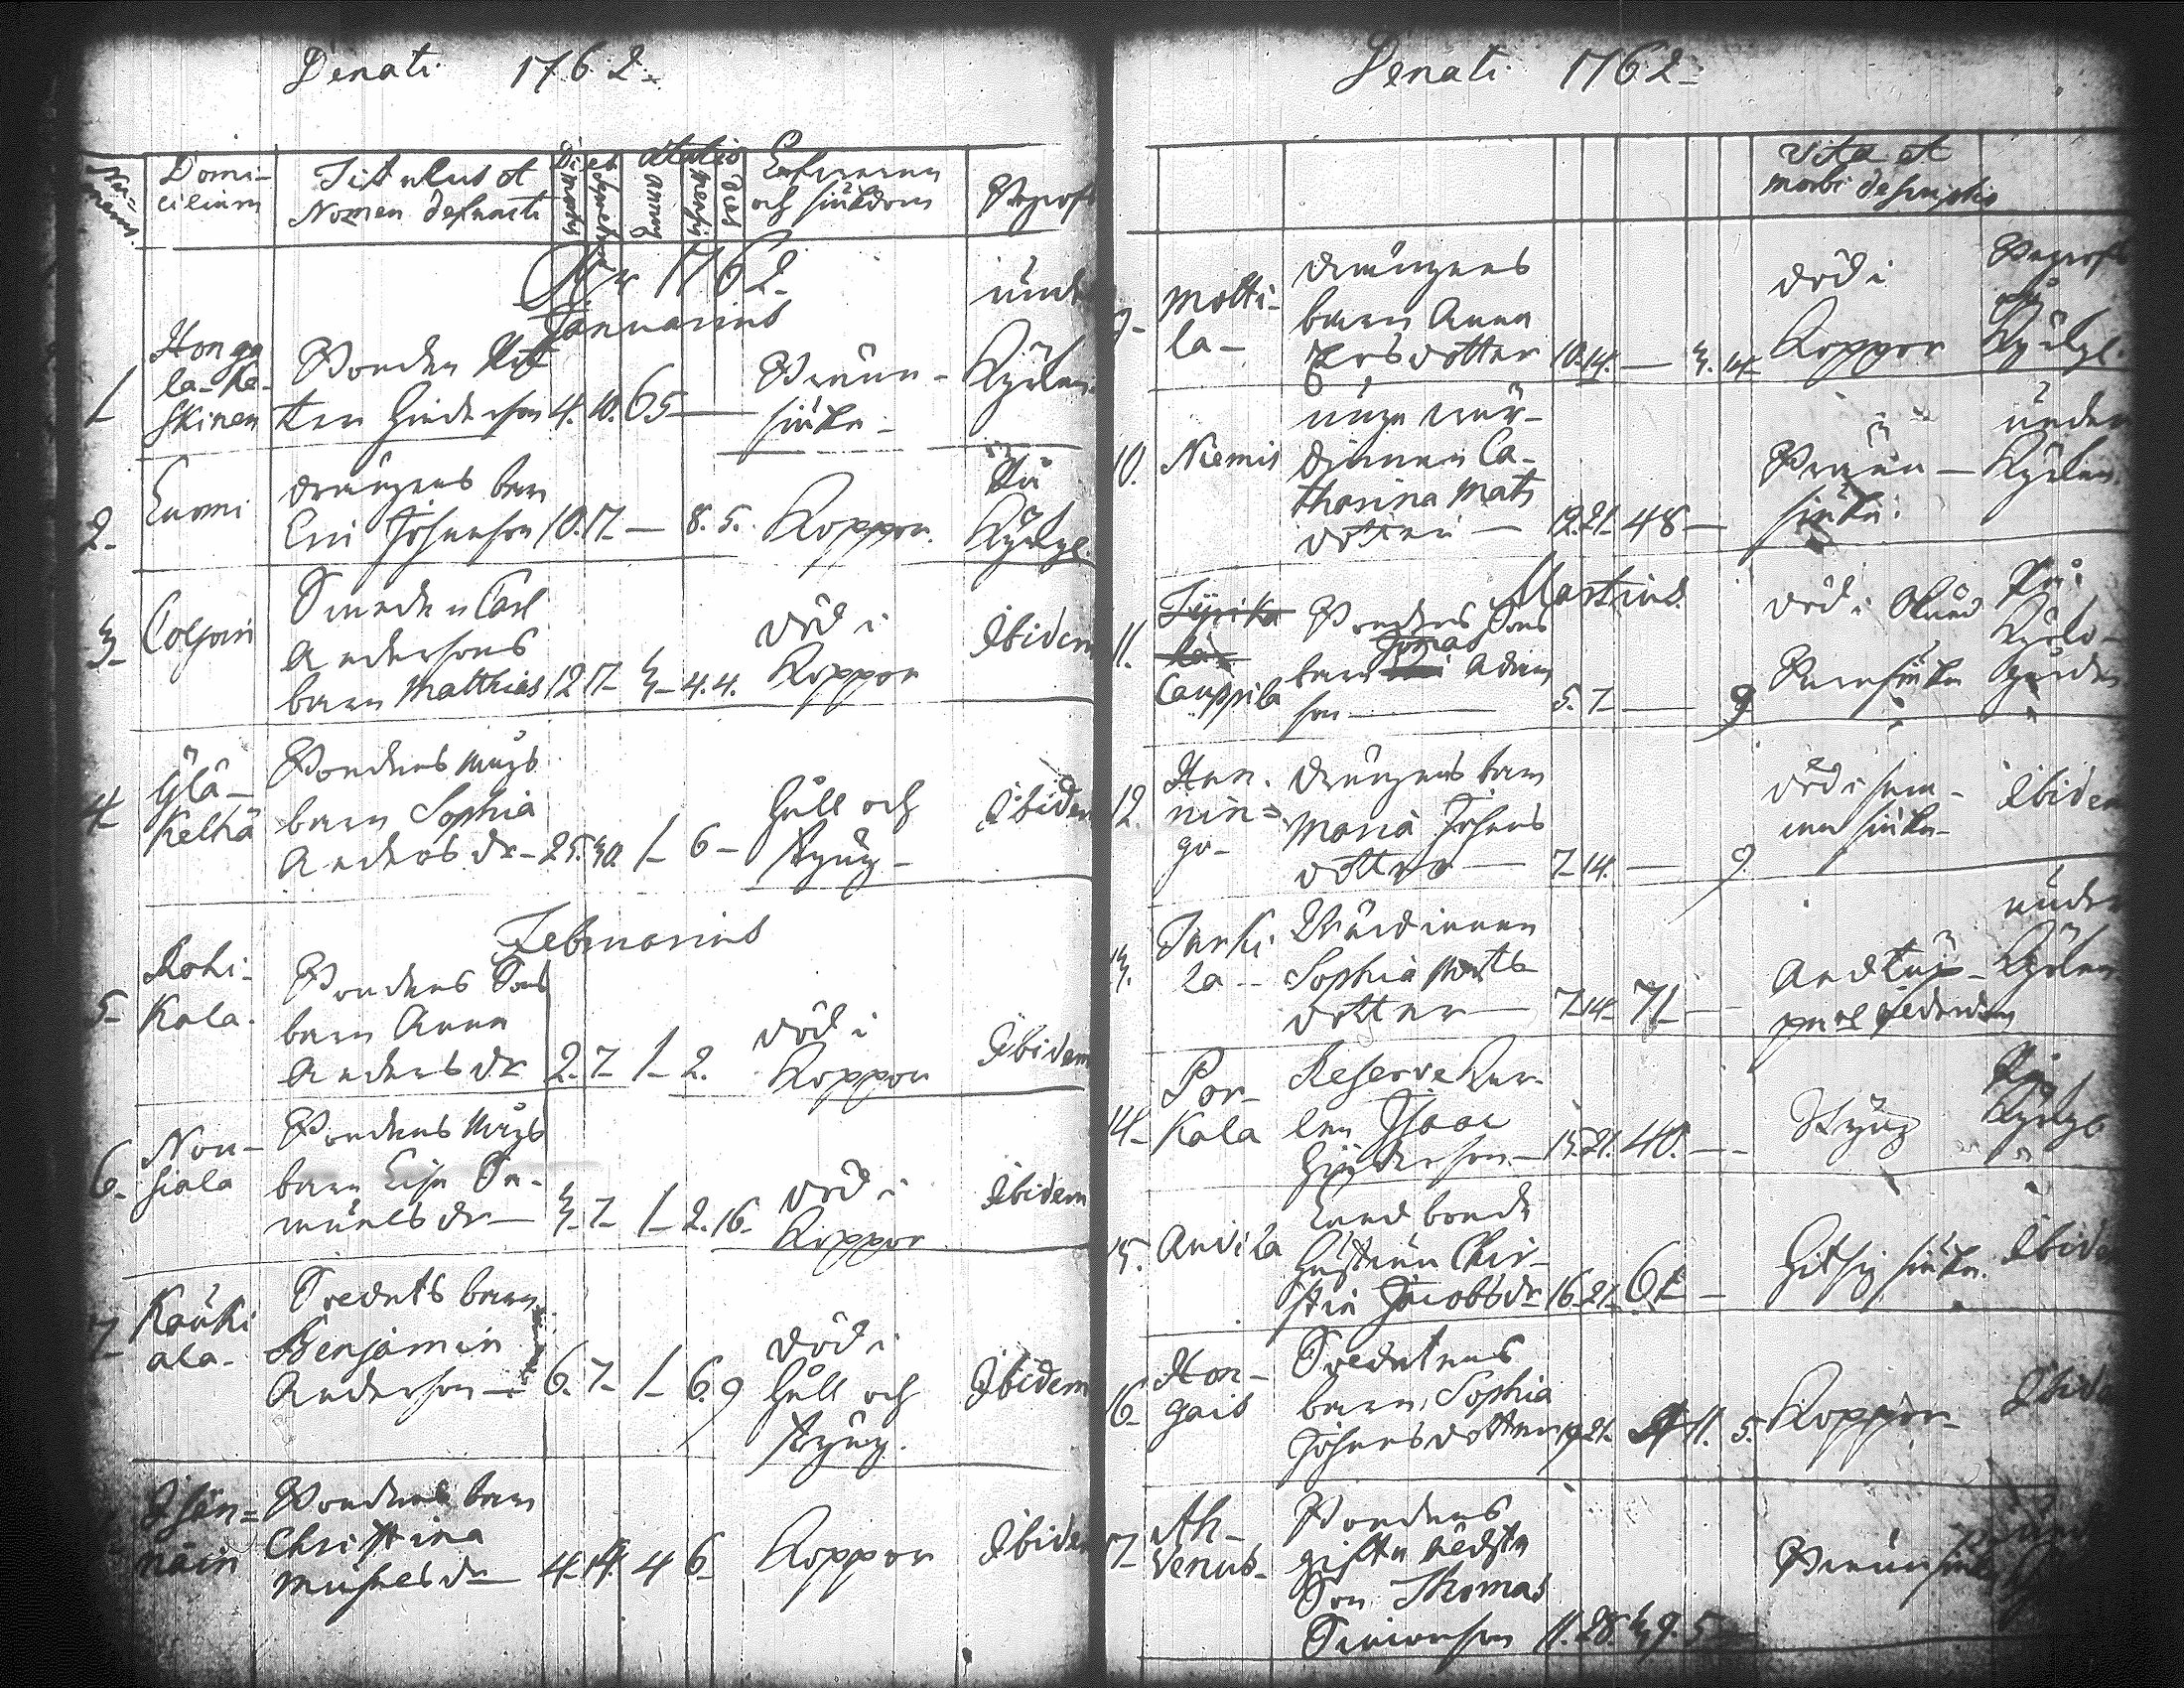 Denati 1762.
Numerus
Domicilium
Titulus et Nomen defuncti
Dies mortis
et sepult.
ætatis annus mensis dies
och siukdom
Begrofs
År 1762
Januarius
1
Honga
la-Ke-
skinen
Bonden
4. 10. 65
Brann-
siuka
under
Kyrkan
2
Lumi
drängens barn
Eric Johansson 10. 17. — 8. 5.
Koppor
På
Kyrkg.
3
Colsoini
Smeden Carl
Andersons
barn Matthias 12 17 3 4. 4.
död i
Koppor
Ibidem
4
Ylä-
Keltiä
Bondens mågs
barn Sophia
Anders dr 25. 30. 1 6
håll och
styng
Ibidem
Februarius
5
Rohi-
Kala
Bondens Sons
barn Anna
Anders dr 2. 7 1 2.
död i
Koppor
Ibidem
6
Nou-
siala
Bondens mågs
barn Lisa Sa-
muels dr 3 7 1 2. 16
död i
Koppor
Ibidem
7
Kauki
ala
barn
Benjamin
Anderson 6. 7 1 6. 9
död i
håll och
styng.
Ibidem
Isän-
näin
Bondens barn
Christina
Michels dr 4 14. 4 6
Koppor
Ibidem
Denati 1762
Vitæ et
morbi descriptio
9
Motti-
la
drängens
barn Anna
Ersdotter 10. 14. — 3. 14
död i
Koppor
Begrofs
på
Kyrkg.
10.
Niemis
unga wär-
dinnan Ca-
tharina Mats
dotter 12. 21. 48
Brann-
siuka
under
Kyrkan
Martius
11.
Cauppila
Bondens Sons
barn Jonas Adam
son 5. 7 — 9
död i
Barnsiuka
På
Kyrko-
gården
12.
Hen-
nin-
ga
drängens barn
Maria Johans
dotter 7 14. — 9.
död i samma
siuka
Ibidem
13.
Tarki
la
Wärdinnan
Sophia Mats
dotter 7 14 71
Andtäp-
pa
under
Kyrkan
14
Por-
Kala
Reserve Kar-
len Isaac
Hindersson 15. 21. 40.
Styng
På
Kyrkg
15.
Anvila
Landbonde
hustrun Chir-
stin Jacobs dr 16 21
Hitsig siuka.
Ibidem
16
Hon-
gais
barn Sophia
Johans dotter 19 21 11. 5.
Koppor
Ibidem
17
Ah-
venus
Bondens
gifta äldsta
Son Thomas
Simonson 11. 28. 39. 5
Brannsiuka